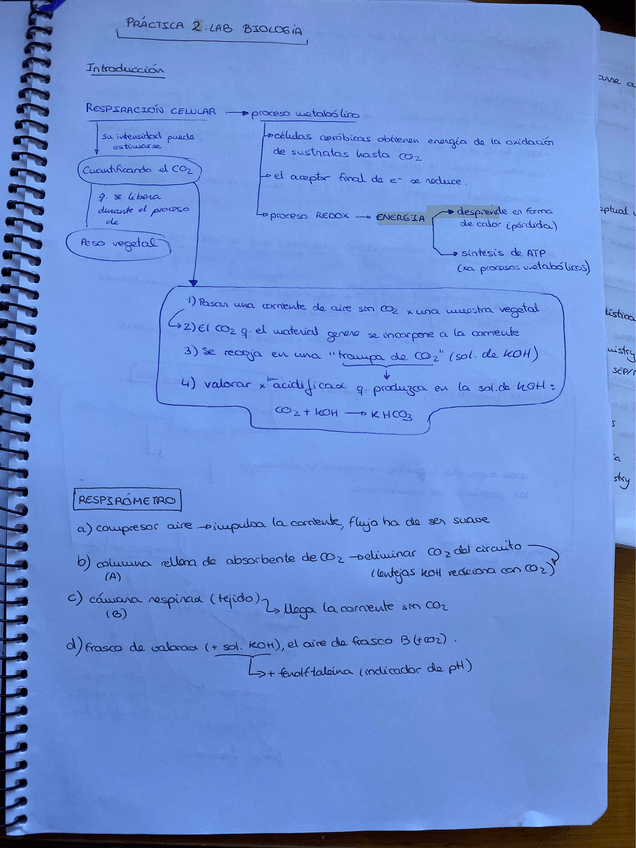 PRÁCTICA 2: LAB BIOLOGÍA
Introducción
RESPIRACIÓN CELULAR → proceso metabólico
su intensidad puede
estimarse
Cuantificando el CO2
q. se libera
durante el proceso
de
Peso vegetal
células aeróbicas obtienen energía de la oxidación
de sustratos hasta CO2
el aceptor final de e- se reduce.
proceso REDOX → ENERGÍA
desprende en forma
de calor (pérdida)
síntesis de ATP
(xa procesos metabólicos)
1) Pasar una corriente de aire sin CO2 x una muestra vegetal
2) El CO2 q. el material genera se incorpore a la corriente
3) Se recoja en una "trampa de CO2" (sol. de KOH)
4) valorar x acidificad q. produzca en la sol. de KOH =
CO2 + KOH → KHCO3
RESPIRÓMETRO
a) compresor aire → impulsa la corriente, flujo ha de ser suave
b) columna rellena de absorbente de CO2 → eliminar CO2 del circuito
(A) (lentejas KOH reacciona con CO2)
c) cámara respirad (tejido) → llega la corriente sin CO2
(B)
d) frasco de valorad (+ sol. KOH), el aire de frasco B (+CO2).
→ + fenolftaleína (indicador de pH)
lística
mistry
SEP/
s
ia
stry